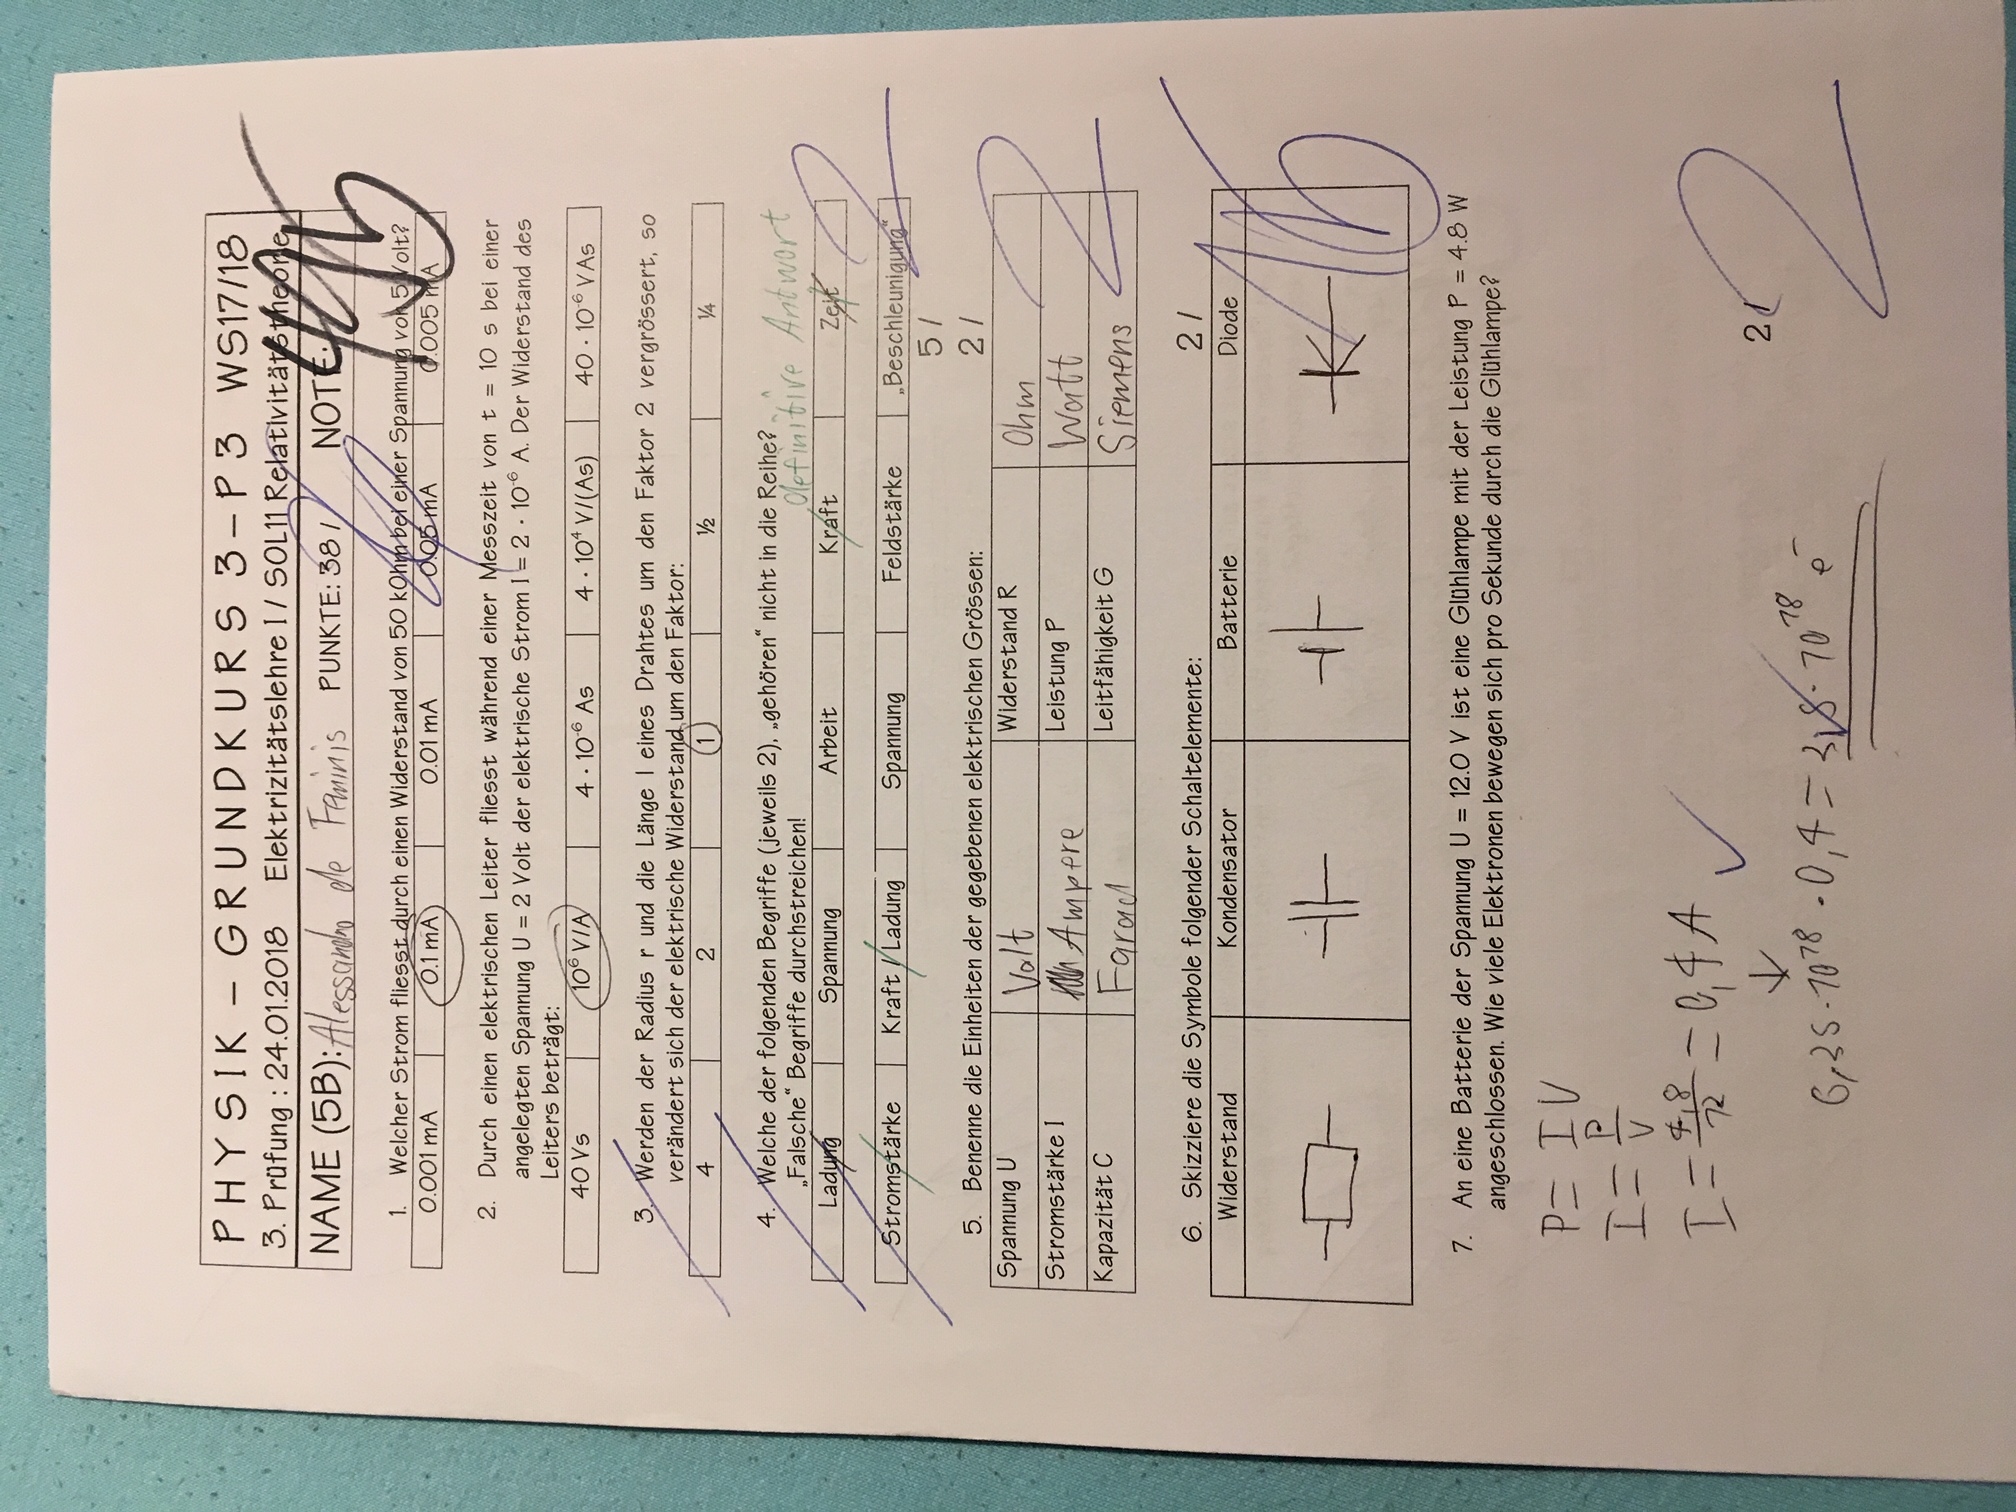 PHYSIK – GRUNDKURS 3–P3 WS17/18
3. Prüfung : 24.01.2018 Elektrizitätslehre I / SOL11 Relativitätstheorie
NAME (5B): Alessandro de Feminis PUNKTE: 38 / NOTE:
1. Welcher Strom fliesst durch einen Widerstand von 50 kOhm bei einer Spannung von 5 Volt?
0.001 mA 0.1 mA 0.01 mA 0.05 mA 0.005 mA
2. Durch einen elektrischen Leiter fliesst während einer Messzeit von t = 10 s bei einer
angelegten Spannung U = 2 Volt der elektrische Strom I = 2 · 10⁻⁶ A. Der Widerstand des
Leiters beträgt:
40 Vs 10⁶ V/A 4 · 10⁻⁶ As 4 · 10⁴ V/(As) 40 · 10⁻⁶ VAs
3. Werden der Radius r und die Länge l eines Drahtes um den Faktor 2 vergrössert, so
verändert sich der elektrische Widerstand um den Faktor:
4 2 1 ½ ¼
4. Welche der folgenden Begriffe (jeweils 2), „gehören“ nicht in die Reihe?
definitive Antwort
„Falsche“ Begriffe durchstreichen!
Ladung Spannung Arbeit Kraft Zeit
2
Stromstärke Kraft / Ladung Spannung Feldstärke „Beschleunigung“
5 /
5. Benenne die Einheiten der gegebenen elektrischen Grössen: 2 /
Spannung U Volt Widerstand R Ohm
Stromstärke I Ampere Leistung P Watt 2
Kapazität C Farad Leitfähigkeit G Siemens
6. Skizziere die Symbole folgender Schaltelemente: 2 /
Widerstand Kondensator Batterie Diode
7. An eine Batterie der Spannung U = 12.0 V ist eine Glühlampe mit der Leistung P = 4.8 W
angeschlossen. Wie viele Elektronen bewegen sich pro Sekunde durch die Glühlampe?
P = I U
I = P/U
I = 4,8/12 = 0,4 A ✓
2 / 2
6,25 · 10¹⁸ · 0,4 = 2,5 · 10¹⁸ e⁻